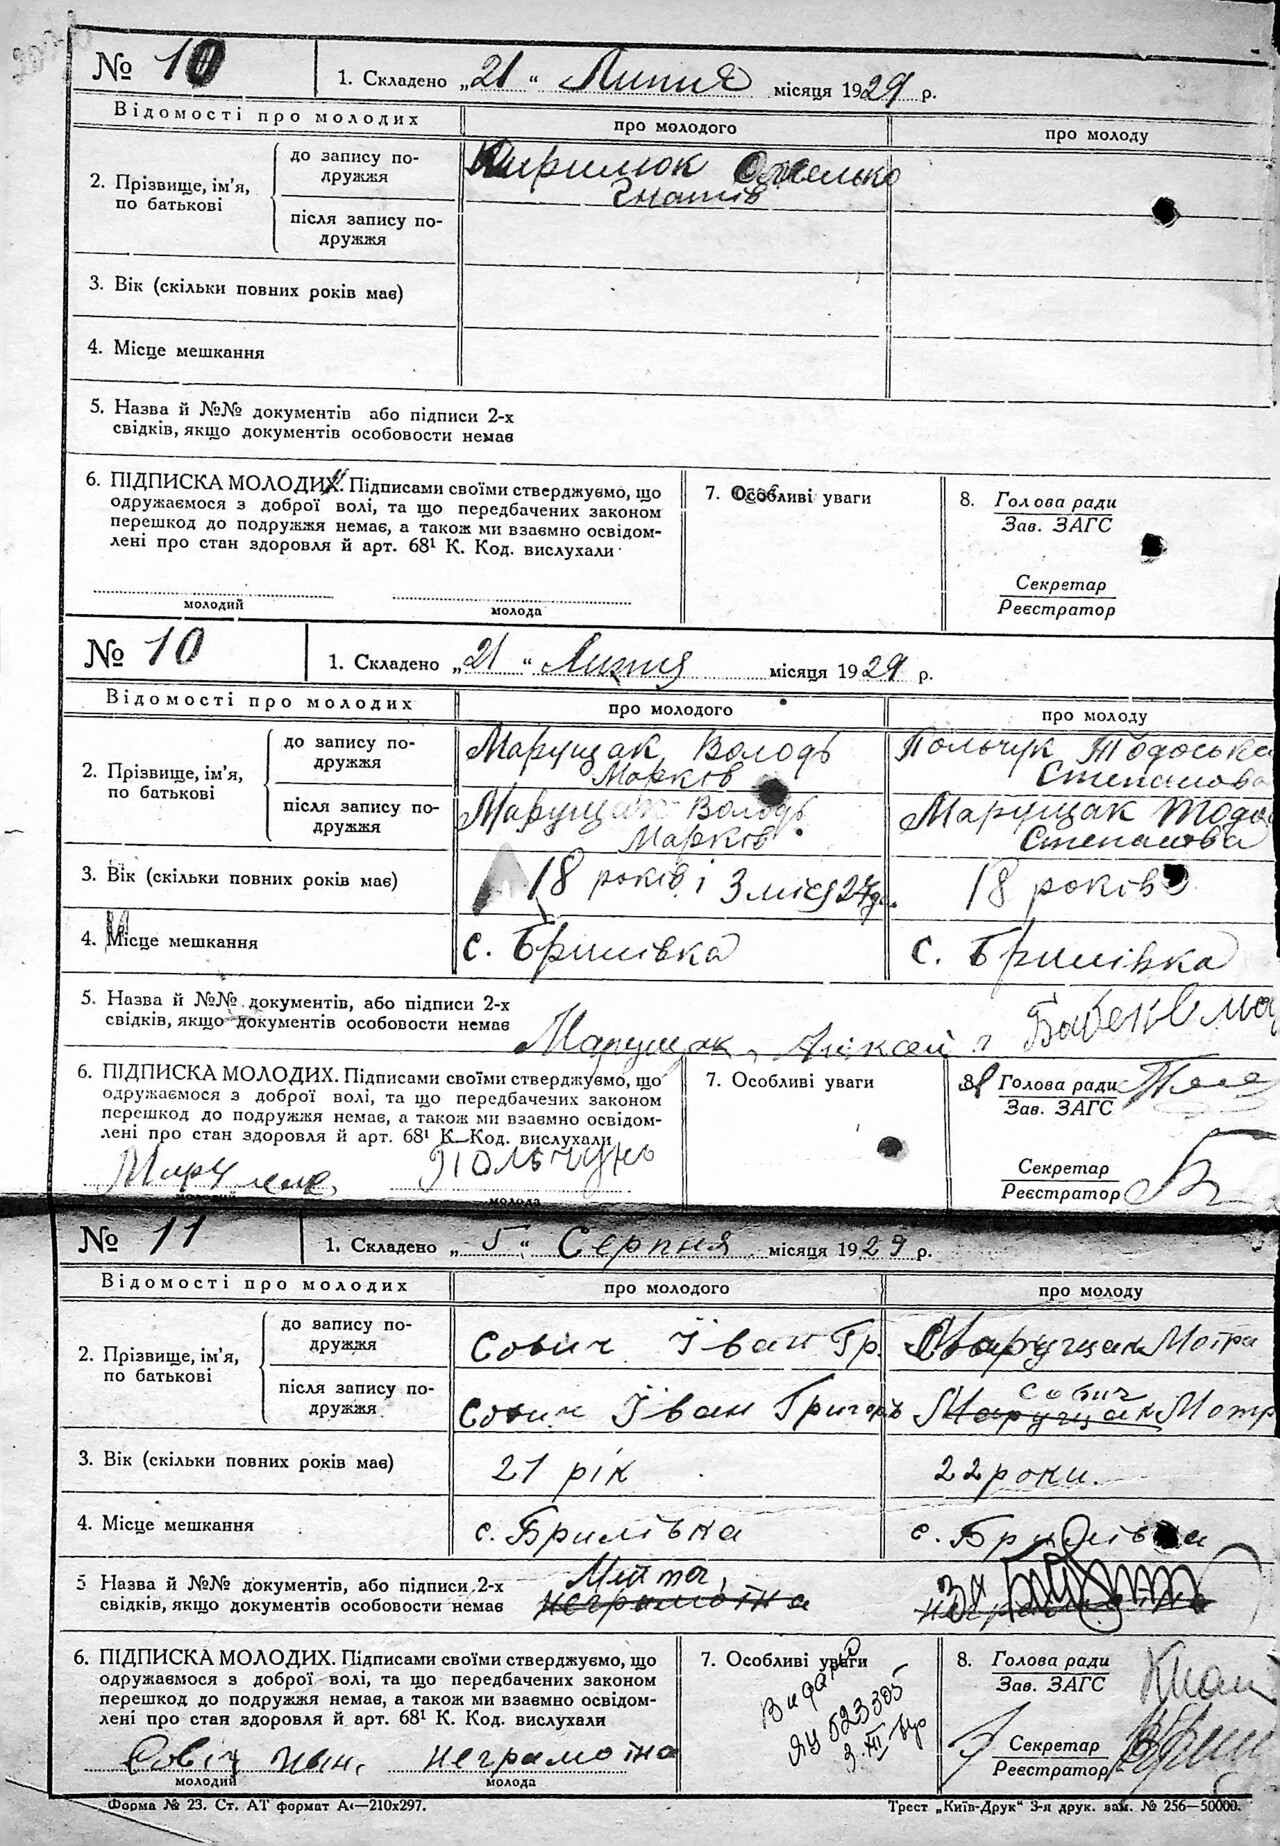 № 10
1. Складено „21“ Липня місяця 1929 р.
Відомості про молодих
про молодого
про молоду
2. Прізвище, ім'я, по батькові
до запису по-
дружжя
Кирилюк Омелько
Гнатів
після запису по-
дружжя
3. Вік (скільки повних років має)
4. Місце мешкання
5. Назва й №№ документів або підписи 2-х
свідків, якщо документів особовости немає
6. ПІДПИСКА МОЛОДИХ. Підписами своїми стверджуємо, що
одружаємося з доброї волі, та що передбачених законом
перешкод до подружжя немає, а також ми взаємно освідом-
лені про стан здоровля й арт. 68¹ К. Код. вислухали
молодий
молода
7. Особливі уваги
8. Голова ради
Зав. ЗАГС
Секретар
Реєстратор
№ 10
1. Складено „21“ Липня місяця 1929 р.
Відомості про молодих
про молодого
про молоду
2. Прізвище, ім'я,
по батькові
до запису по-
дружжя
Марущак Володь
Марків
Польчук Тодоська
Степанова
після запису по-
дружжя
Марущак Володь
Марків
Марущак Тодо
Степанова
3. Вік (скільки повних років має)
18 років і 3 міся 27
18 років
4. Місце мешкання
с. Брилівка
с. Брилівка
5. Назва й №№ документів, або підписи 2-х
свідків, якщо документів особовости немає
Марущак
6. ПІДПИСКА МОЛОДИХ. Підписами своїми стверджуємо, що
одружаємося з доброї волі, та що передбачених законом
перешкод до подружжя немає, а також ми взаємно освідом-
лені про стан здоровля й арт. 68¹ К. Код. вислухали
молодий
молода
7. Особливі уваги
8. Голова ради
Зав. ЗАГС
Секретар
Реєстратор
№ 11
1. Складено „5“ Серпня місяця 1929 р.
Відомості про молодих
про молодого
про молоду
2. Прізвище, ім'я,
по батькові
до запису по-
дружжя
Сович Їван Гр.
Марущак Мотра
після запису по-
дружжя
Сович Їван Григоръ
Сович
Марущак Мотр
3. Вік (скільки повних років має)
21 рік
22 роки.
4. Місце мешкання
с. Брилівка
с. Брилівка
5 Назва й №№ документів, або підписи 2-х
свідків, якщо документів особовости немає
неграмотна
6. ПІДПИСКА МОЛОДИХ. Підписами своїми стверджуємо, що
одружаємося з доброї волі, та що передбачених законом
перешкод до подружжя немає, а також ми взаємно освідом-
лені про стан здоровля й арт. 68¹ К. Код. вислухали
Совіч
молодий
неграмотна
молода
7. Особливі уваги
Видано
ЯЦ 523305
8. Голова ради
Зав. ЗАГС
Секретар
Реєстратор
Форма № 23. Ст. АТ формат А4—210x297.
Трест „Київ-Друк“ 3-я друк. зам. № 256—50000.